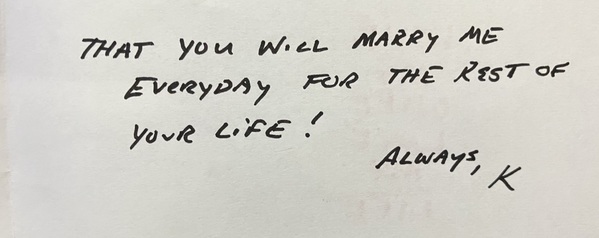 THAT YOU WILL MARRY ME
EVERYDAY FOR THE REST OF
YOUR LIFE!
ALWAYS, K